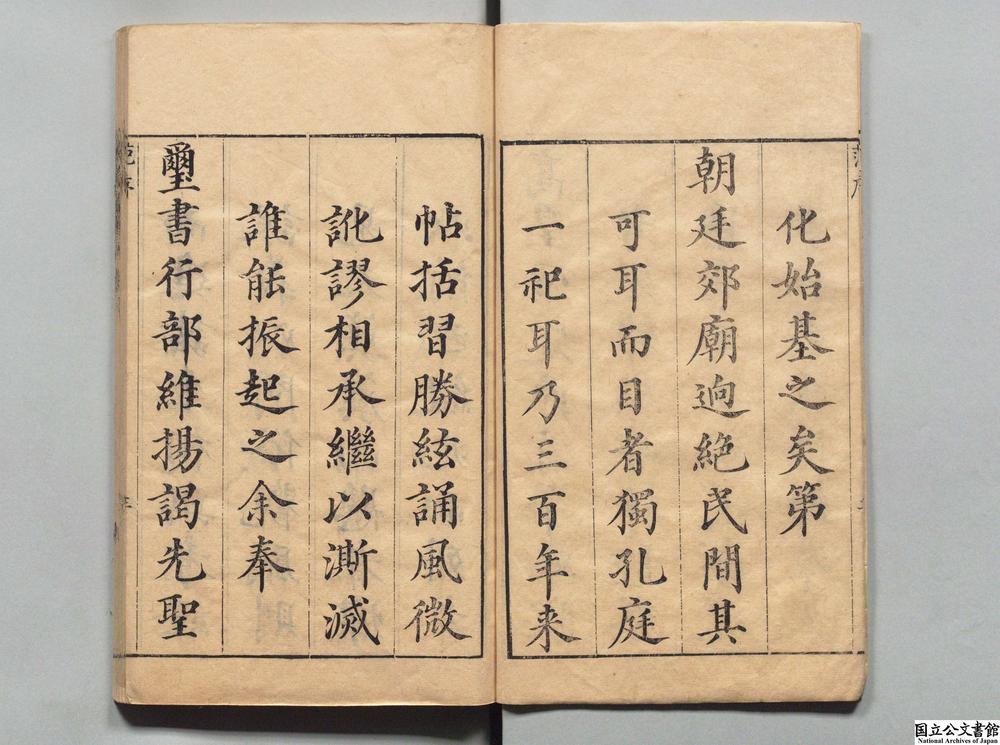 化始基之矣第
朝廷郊廟逈絶民間其
可耳而目者獨孔庭
一祀耳乃三百年来
帖括習勝絃誦風微
訛謬相承繼以澌滅
誰能振起之余奉
璽書行部維揚謁先聖
国立公文書館
National Archives of Japan